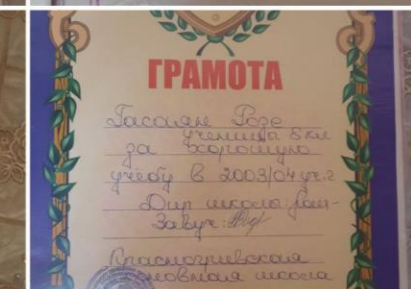 ГРАМОТА
Гасоян Розе
ученицы 5 кл
за хорошую
учебу в 2003/04 уч.г
Дир школы:
Завуч:
Красногривская
основная школа